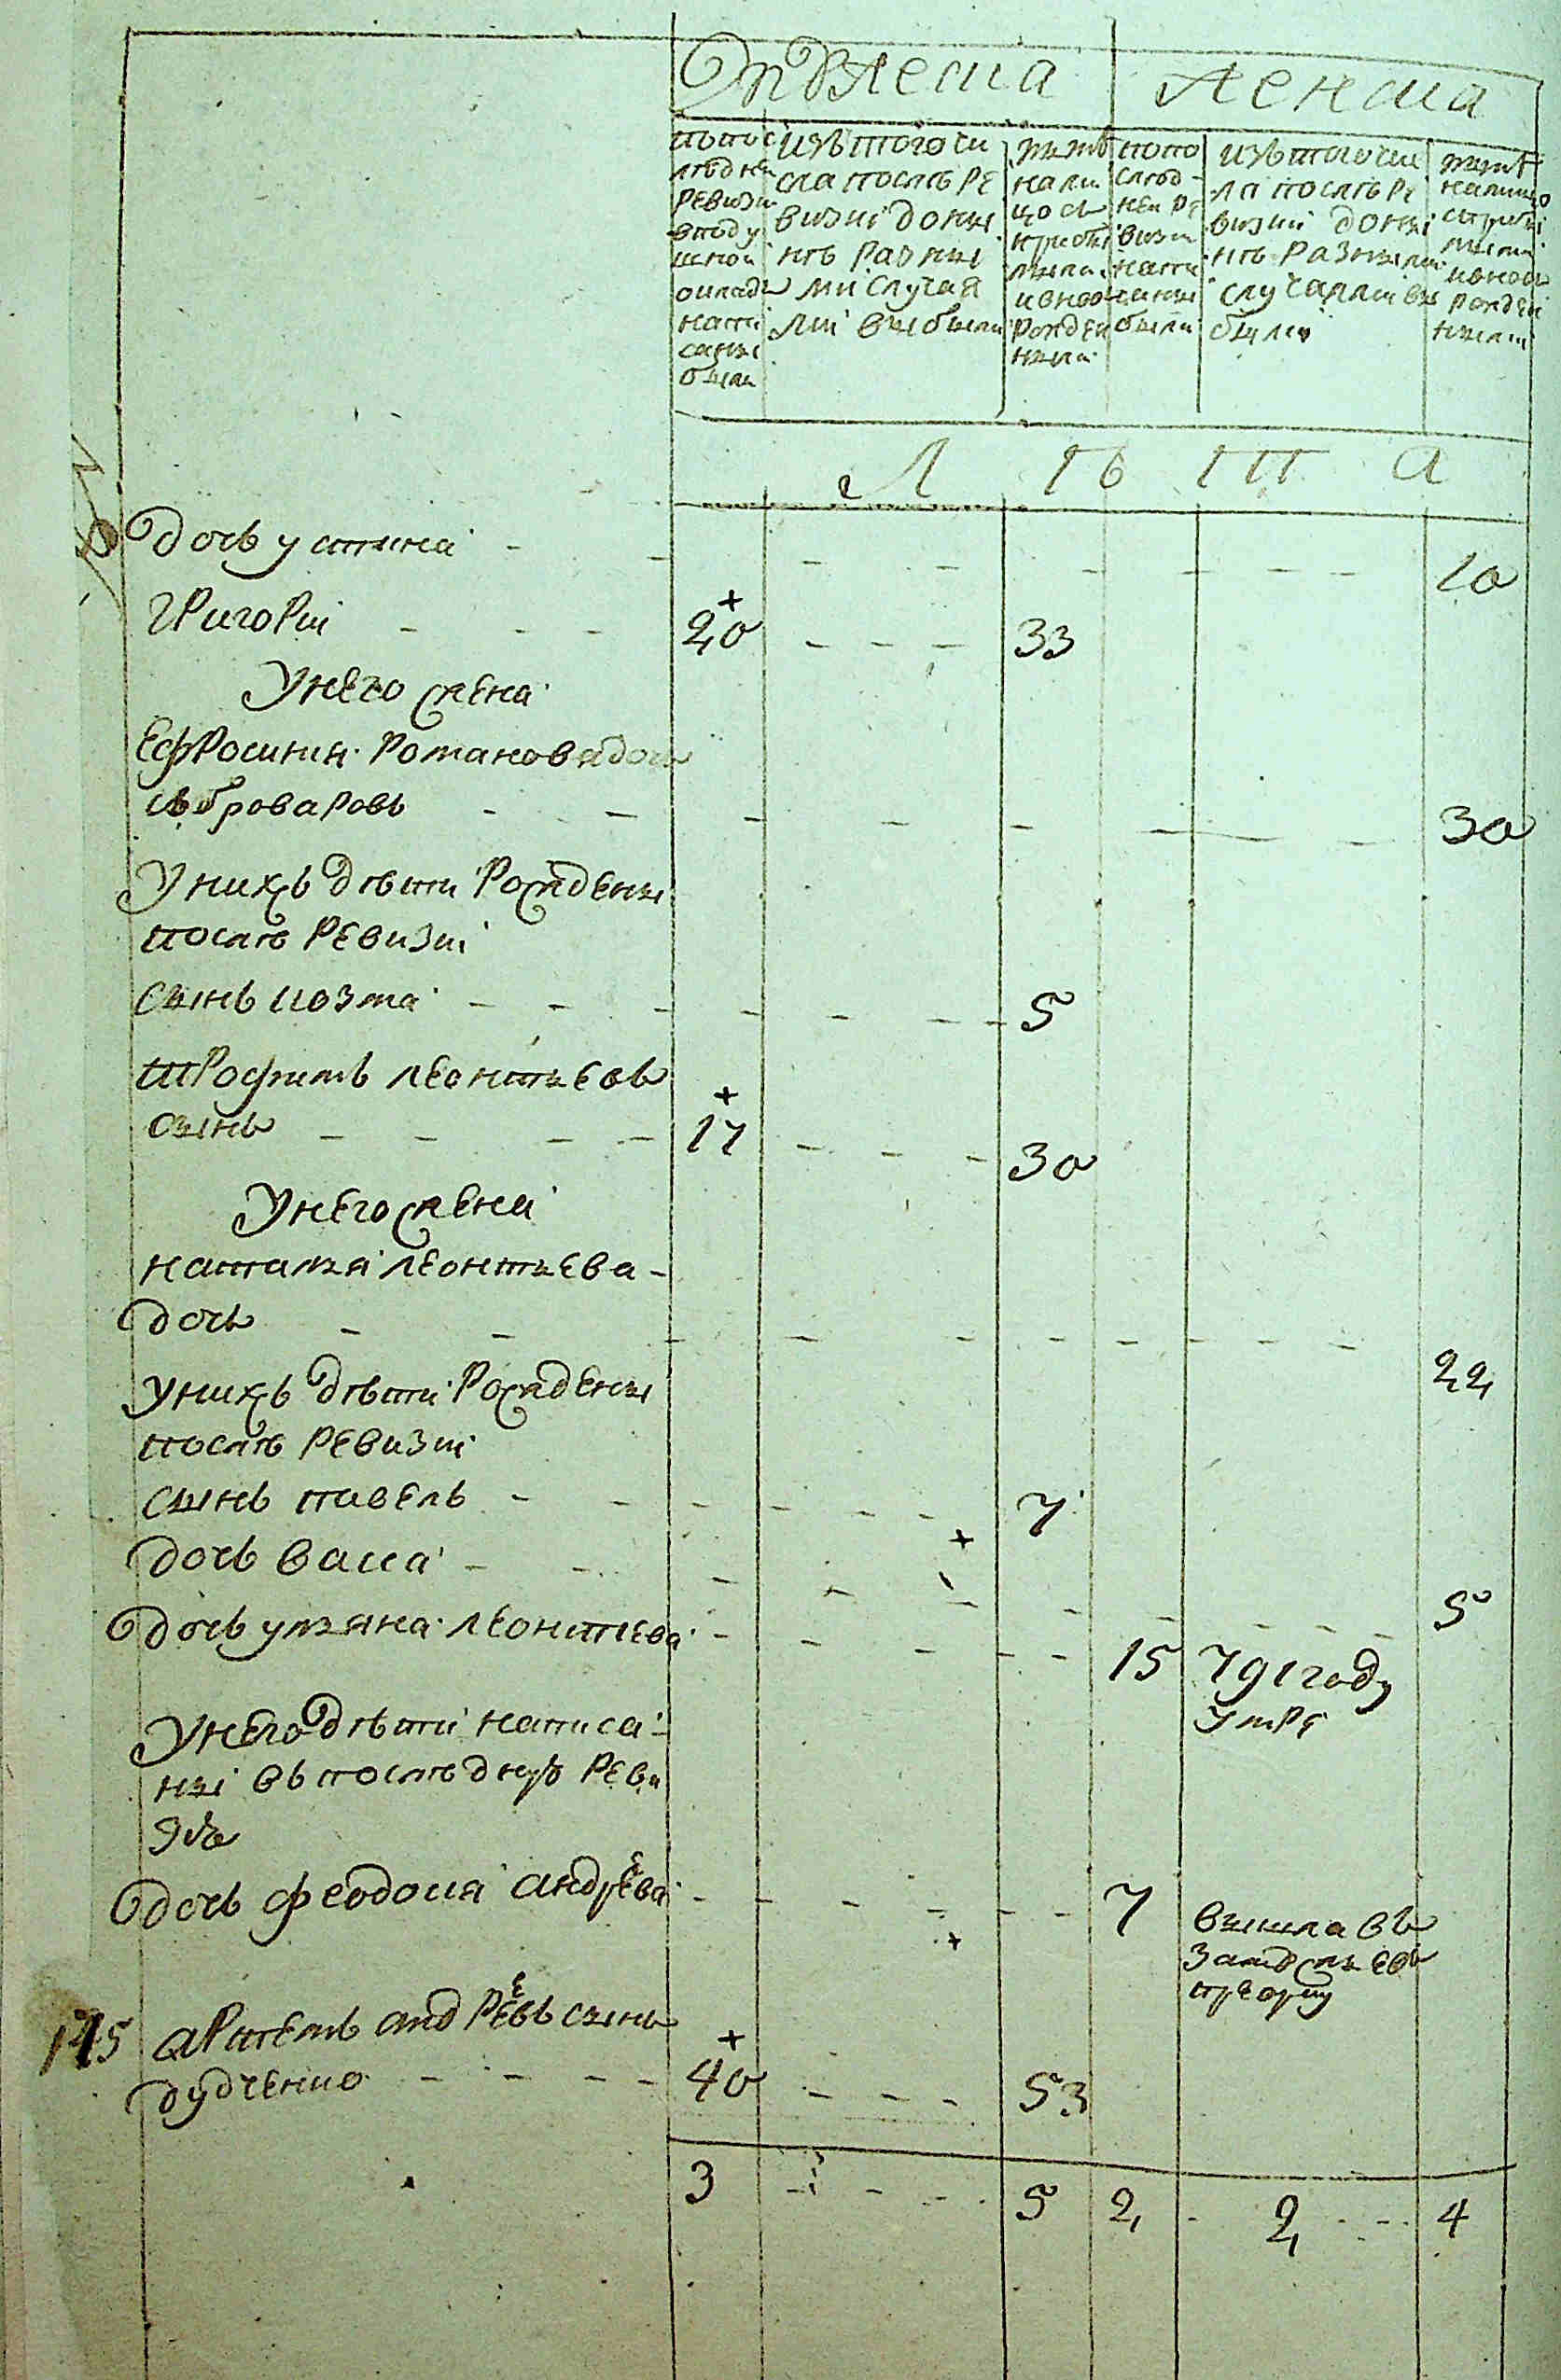 Мужеска Женска
попос
лѣдней
ревизи
вподу
шной
окладъ
напи
саны
были
изътогочи
сла послѣ ре
визиї доны
нѣ разны
ми случая
ми выбыли
нали
цо съ
прибы
лыми
ивново
рожден
ными
попо
слѣд-
ней ре
визи
напи
саны
были
изътогочи
ла послѣ ре
визии доны
нѣ разными
случаями вы
были
налицо
сприбы
лыми
ивново
рожден
ными
Л Ѣ Т А
дочь устина 10
Григориї 20 33
Унего жена
Ефросиния Романова дочь
съ броваровъ 30
Унихъ дѣти рождены
послѣ ревизиї
сынъ козма 5
Трофимъ леонтьевъ
сынъ 17 30
Унего жена
наталья леонтьева
дочь 22
Унихъ дѣти рождены
послѣ ревизиї
сынъ павелъ 7
дочь васса 5
дочь ульяна леонтьева 15 791 году
умре
Унего дѣти написа
ны въ последную реви
зїю
дочь феодосия андреева 7 вышла въ
замужьевъ
145 Артемъ андреевъ сынъ
дудченко 40 53
3 5 2 2 4